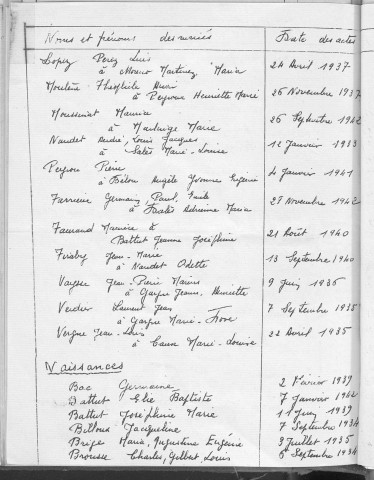 Noms et prénoms des mariés Date des actes
Lopez Perez Luis 24 Avril 1937
à Moreno Martinez Maria
Théophile Henri 26 Novembre 1937
à Peyrou Henriette Marie
Moussiniat Maurice 26 Septembre 1942
à Marie
Naudet André, Louis Jacques 12 Janvier 1933
à Salès Marie-Louise
Peyrou Pierre 4 Janvier 1941
à Angèle Yvonne Eugénie
Germany Paul, Emile 28 Novembre 1942
à Adrienne Maria
Maurice à 21 Août 1940
Battut Jeanne Joséphine
Jean-Marie 13 Septembre 1940
à Naudet Odette
Vaysse Jean-Pierre Marius 9 Juin 1936
à Jeanne, Henriette
Verdier Laurent Jean 7 Septembre 1935
à Marie-Rose
Vergne Jean-Louis 22 Avril 1935
à Marie-Louise
Naissances
Bac Germaine 2 Février 1939
Battut Elie Baptiste 7 Janvier 1942
Battut Joséphine Marie 1939
Billoux Jacqueline 7 Septembre 1934
Brige Maria, Augustine Eugénie 9 Juillet 1935
Brousse Charles, Gilbert, Louis 6 Septembre 1934